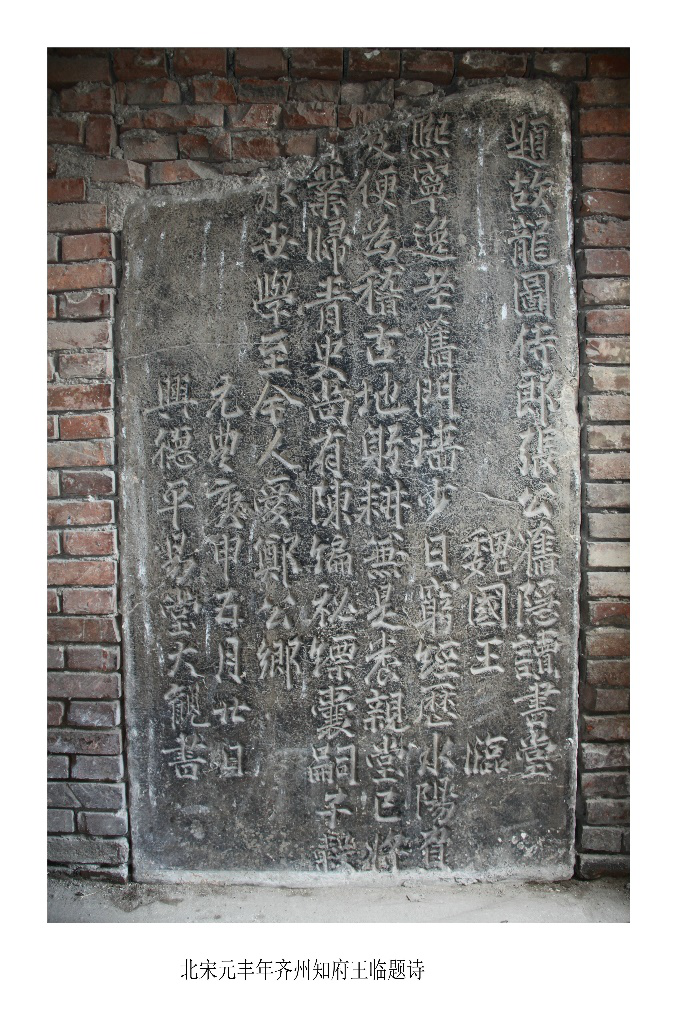 題故龍圖侍郎張公舊隱讀書堂
魏國王 臨
熙寧逸老舊門墻少日窮經歷水陽資
便為稽古地躬耕兼是養親堂已將
業歸青史尚有陳編祕縹囊嗣子
世學至今人愛鄭公鄉
元豐庚申五月廿日
興德平易堂大觀書
北宋元丰年齐州知府王临题诗